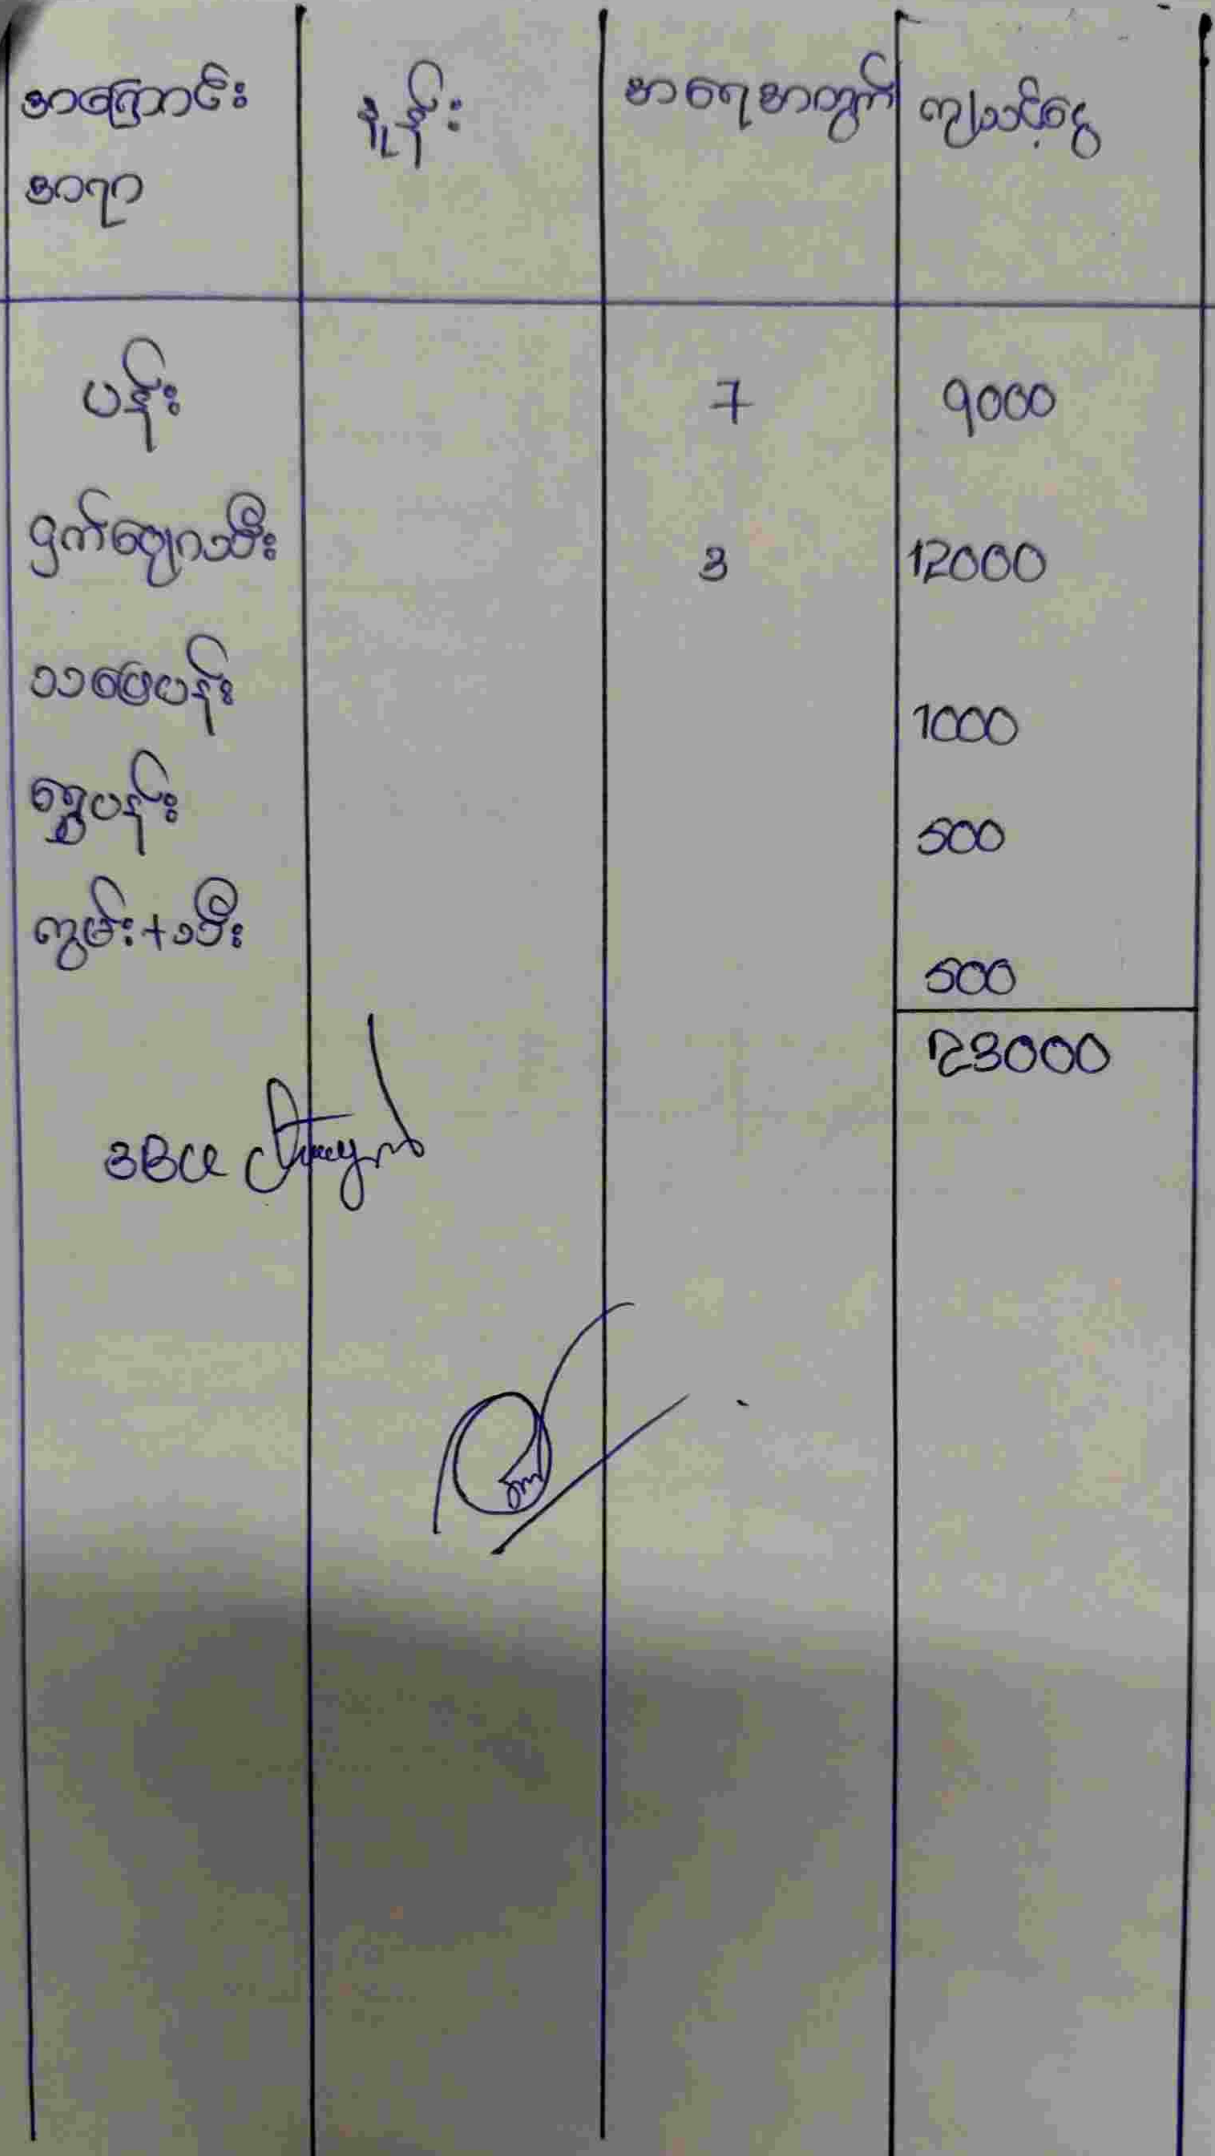 အကြောင်းအရာ နှုန်း အရေအတွက် ကျသင့်ငွေ
ပန်း 7 9000
ငှက်ပျောသီး 3 12000
သပြေပန်း 1000
ရွှေပန်း 500
ကွမ်း+သီး 500
23000